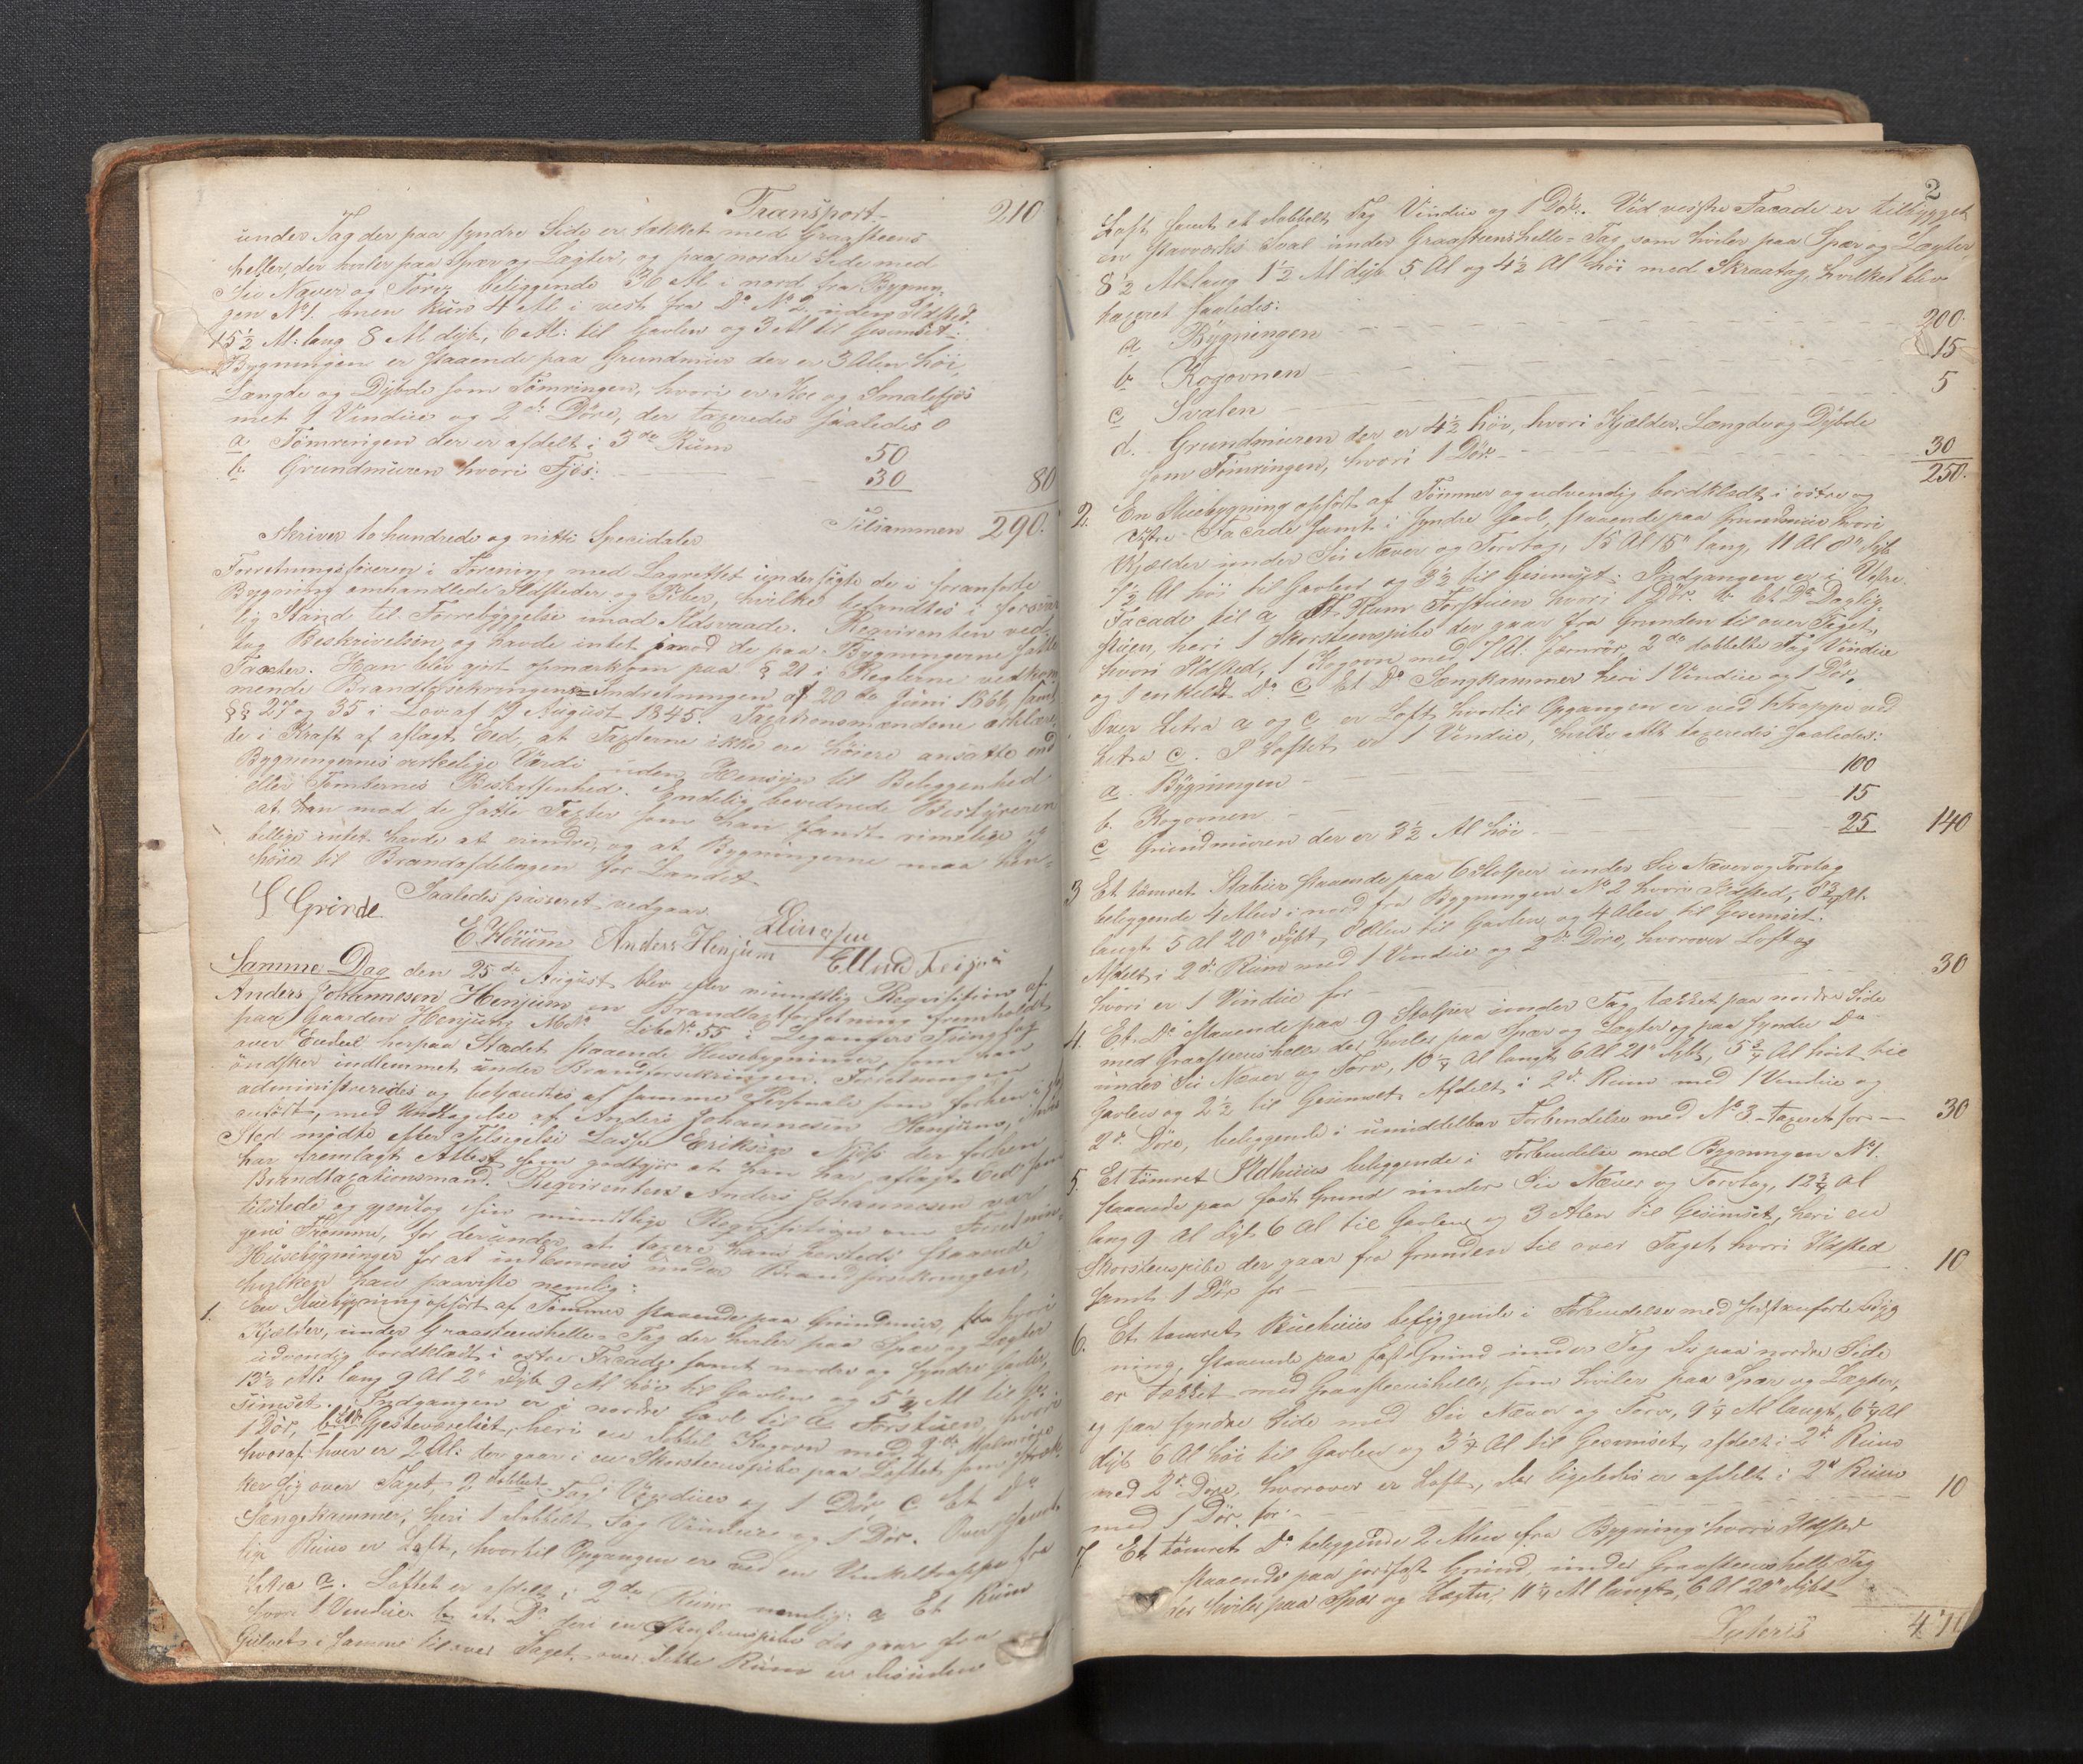 Transport 210
under Tag der paa syndre Side er tækket med Graasteens
heller, der hviler paa Spær og Lægter, og paa nordre Side med
Siv Næver og Torv, beliggende 36 Al i nord fra Bygnin-
gen No 1. men kuns 4 Al. i vest fra Do No 2, uden Ildsted
15½ Al: lang 8 Al dyb, 6 Al: til Gavlen og 3 Al til Gesimset:
Bygningen er staaende paa Grundmur der er 3 Alen høi,
Længde og Dybde som Tømringen, hvori er Koe og Smalefjøs
met 1 Vindue og 2de Døre, der taxeredes saaledes
a. Tømringen der er afdelt i 3de Rum 50
b. Grundmuren hvori Fjøs: 30 80
Tilsammen 290.
skriver to hundrede og nitti Specidaler
Forretningsføreren i Forening med Lagrettet undersøgte de i foranførte
Bygning omhandlede Ildsteder og Piber, hvilke befandtes i forsvar-
lig Stand til Forrebyggelse imod Ildsvaade. Reqvirenten ved-
tog Beskrivelsen og havde intet imod de paa Bygningerne satte
Taxter. Han blev gjort opmærksom paa § 21 i Reglerne vedkom-
mende Brandforsikrings-Indretningen af 20de Juni 1866, samt
§§ 27 og 35 i Lov af 19 August 1845. Taxationsmændene erklære-
de i Kraft af aflagt Eed, at Taxterne ikke ere høiere ansatte end
Bygningernes virkelige Værdi uden Hensyn til Beliggenhed
eller Tomternes Beskaffenhed. Endelig bevidnede Bestyreren
at han mod de satte Taxter som han fandt rimelige
tillige intet havde at erindre, og at Bygningerne maa hen-
høre til Brandafdelingen for Landet.
Saaledes passeret vedgaar
S Grinde
E. Hörum Anders Henjum
Samme Dag den 25de August blev efter mundtlig Reqvisition af
Anders Johannesen Henjum en Brandtaxtforretning fremholdt
paa Gaarden Henjum Mno Løbeno 55 i Leganger Thinglag
over Endeel herpaa Stædet staaende Husebygninger, som han
ønsker indlemmet under Brandforsikringen. Forretningen
administreredes og betjentes af samme Personale som forhen
anført, med Undtagelse af Anders Johannesen Henjum, i hvis
Sted mødte efter Tilsigelse Lasse Eriksen Njøs der forhen
har fremlagt Attest som godtgjør at han har aflagt Eed som
Brandtaxationsmand. Reqvirenten Anders Johannesen var
tilstede og gjentog sin mundtlige Reqvisition om Forretnin-
gens Fremme, for derunder at taxere ham hersteds staaende
Husebygninger for at indlemmes under Brandforsikringen,
hvilken han paaviste nemlig:
1. En Stuebygning opført af Tømmer staaende paa Grundmur hvori
Kjelder, under Graasteenshelle-Tag der hviler paa Spær og Lægter
udvendig bordklædt i østre Facade samt nordre og syndre Gavler,
13½ Al: lang 9 Al 2" dyb 9 Al høi til Gavlen og 5¼ Al til Ge-
simset. Indgangen er i nordre Gavl til a Forstuen, hvori
1 Dør, b Gjesteværelset, heri en Kogovn med 2de
hvoraf hver er 2 Al: der gaar i en Skorsteenspibe paa Loftet som stræk-
ker sig over Taget 2 dobbelt Fag Vinduer og 1 Dør C Et Do
Sængekammer, heri 1 dobbelt Fag Vinduer og 1 Dør. Over samt-
lige Rum er Loft, hvortil Opgangen er ved en Vinkeltrappe fra
Litra a. Loftet er afdelt i 2de Rum nemlig: a Et Rum
hvori 1 Vindue b et Do deri en Skorsteenspibe der gaar fra
Gulvet i samme til over Taget, over dette Rum er desuden
2
Loft samt et dobbelt Fag Vindue og 1 Dør. Ved vestre Facade er tilbygget
en Stavværks Sval under Graasteenshelle-Tag, som hviler paa Spær og Lægter,
8½ Al lang 1½ Al dyb 5 Al og 4½ Al høi med Skraatag, hvilket blev
taxeret saaledes:
a Bygningen 200.
b. Kogovnen 15
c Svalen 5
d. Grundmuren der er 4½ høi, hvori Kjælder, Længde og Dybde
som Tømringen, hvori 1 Dør 30
250.
2. En Stuebygning opført af Tømmer og udvendig bordklædt i østre og
Facade samt i syndre Gavl, staaende paa Grundmur hvori
Kjælder under Siv Næver og Torvtag, 15 Al 15" lang, 11 Al 8" dyb
½ Al høi til Gavlen og 3½ til Gesimset: Indgangen er i Vestre
Facade til a Et Rum Forstuen hvori 1 Dør. b. Et Do Daglig-
stuen, heri 1 Skorsteenspibe der gaar fra Grunden til over Taget,
hvori Ildsted, 1 Kogovn med 7 Al. Jernrør, 2de dobbelte Fag Vinduer
og 1 enkeldt Do c Et Do Sængkammer heri 1 Vindue og 1 Dør,
Over Litra a og c er Loft hvortil Opgangen er ved Trappe ved
Litra c. I Loftet er 1 Vindue, hvilke Alt taxeredes saaledes:
a. Bygningen 100
b. Kogovnen 15
c Grundmuren der er 3½ Al høi 25 140
3 Et tømret Stabur staaende paa 6 Stolper under Siv Næver og Torvtag
beliggende 4 Alen i nord fra Bygningen No 2 hvori Ildsted, 8¾ Al.
langt 5 Al 20" dybt, Alen til Gavlen og 4 Alen til Gesimset.
Afdelt i 2de Rum med 1 Vindue og 2de Døre, hvorover Loft og
hvori er 1 Vindue for 30
4. Et Do staaende paa 9 Stolper under Tag tækket paa nordre Side
med Graasteenshelle der hviler paa Spær og Lægter og paa syndre Do
under Siv Næver og Torv, 10¼ Al langt 6 Al 21" dybt, 5¾ Al høit til
Gavlen og 2½ til Gesimset, Afdelt i 2de Rum med 1 Vindue og
2de Døre, beliggende i umiddelbar Forbindelse med No 3 taxeret for 30
5. Et tømret Ildhuus beliggende i Forbindelse med Bygningen No 1.
staaende paa fast Grund under Siv Næver og Torvtag, 12¾ Al
lang 9 Al dyb 6 Al til Gavlen og 3 Alen til Gesimset, heri en
Skorsteenspibe der gaar fra Grunden til over Taget, hvori Ildsted
samt 1 Dør for 10
6. Et tømret Buehuus beliggende i Forbindelse med sidstanførte Byg
ning, staaende paa fast Grund under Tag der paa nordre Side
er tækket med Graasteenshelle, som hviler paa Spær og Lægter,
og paa syndre Side med Siv Næver og Torv, 9¼ Al langt, 6¾ Al
dyb 6 Al høi til Gavlen og 3¼ Al til Gesimset, afdelt i 2de Rum
med 2de Døre, hvorover er Loft, der ligeledes er afdelt i 2de Rum
med 1 Dør for 10
7. Et tømret Do beliggende 2 Alen fra Bygning hvori Ildsted
staaende paa jordfast Grund, under Graasteenshelle-Tag
der hviler paa Spær og Lægter, 11¼ Al langt, 6 Al 20" dybt
Lateris 470